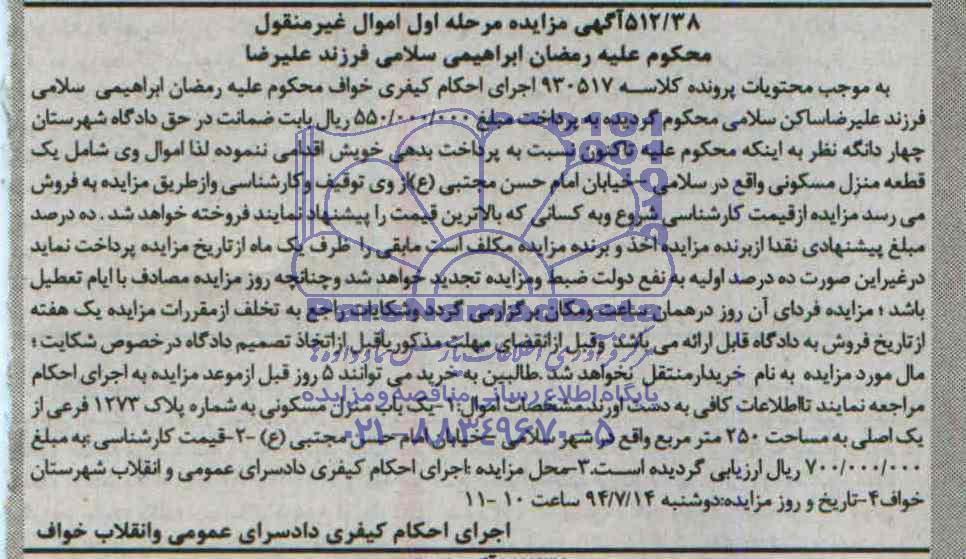 ۵۱۲/۳۸آگهی مزایده مرحله اول اموال غیرمنقول
محکوم علیه رمضان ابراهیمی سلامی فرزند علیرضا
به موجب محتویات پرونده کلاسه ۹۳۰۵۱۷ اجرای احکام کیفری خواف محکوم علیه رمضان ابراهیمی سلامی
فرزند علیرضاساکن سلامی محکوم گردیده به پرداخت مبلغ ۵۵۰/۰۰۰/۰۰۰ ریال بابت ضمانت در حق دادگاه شهرستان
چهار دانگه نظر به اینکه محکوم علیه تاکنون نسبت به پرداخت بدهی خویش اقدامی ننموده لذا اموال وی شامل یک
قطعه منزل مسکونی واقع در سلامی -خیابان امام حسن مجتبی (ع)از وی توقیف وکارشناسی وازطریق مزایده به فروش
می رسد مزایده ازقیمت کارشناسی شروع وبه کسانی که بالاترین قیمت را پیشنهاد نمایند فروخته خواهد شد . ده درصد
مبلغ پیشنهادی نقدا ازبرنده مزایده اخذ و برنده مزایده مکلف است مابقی را ظرف یک ماه ازتاریخ مزایده پرداخت نماید
درغیراین صورت ده درصد اولیه به نفع دولت ضبط ومزایده تجدید خواهد شد وچنانچه روز مزایده مصادف با ایام تعطیل
باشد ؛ مزایده فردای آن روز درهمان ساعت ومکان برگزارمی گردد وشکایات راجع به تخلف ازمقررات مزایده یک هفته
ازتاریخ فروش به دادگاه قابل ارائه می باشد وقبل ازانقضای مهلت مذکوریاقبل ازاتخاذ تصمیم دادگاه درخصوص شکایت ؛
مال مورد مزایده به نام خریدارمنتقل نخواهد شد .طالبین به خرید می توانند ۵ روز قبل ازموعد مزایده به اجرای احکام
مراجعه نمایند تااطلاعات کافی به دست آورند.مشخصات اموال:۱-یک باب منزل مسکونی به شماره پلاک ۱۲۷۳ فرعی از
یک اصلی به مساحت ۲۵۰ متر مربع واقع در شهر سلامی -خیابان امام حسن مجتبی (ع) -۲-قیمت کارشناسی :به مبلغ
۷۰۰/۰۰۰/۰۰۰ ریال ارزیابی گردیده است.۳-محل مزایده :اجرای احکام کیفری دادسرای عمومی و انقلاب شهرستان
خواف۴-تاریخ و روز مزایده:دوشنبه ۹۴/۷/۱۴ ساعت ۱۰ -۱۱
اجرای احکام کیفری دادسرای عمومی وانقلاب خواف
پایگاه اطلاع رسانی مناقصه ومزایده
۰۲۱-۸۸۳۴۹۶۷۰-۵